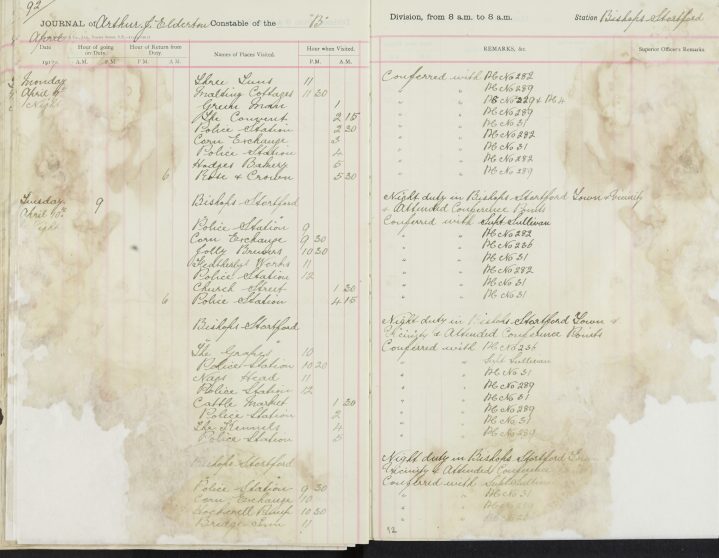 92
JOURNAL of Arthur J. Elderton Constable of the "B" Division, from 8 a.m. to 8 a.m. Station Bishops Stortford
April
Date Hour of going on Duty. Hour of Return from Duty. Names of Places Visited. Hour when Visited. REMARKS, &c. Superior Officer's Remarks.
191 A.M. P.M. A.M. P.M. P.M. A.M.
Monday Three Tuns 11 Conferred with PC No 282
April 9th Malting Cottages 11 30 " " PC No 289
Night Green Man 1 " " PC No 229 & PC 4
The Convent 2 15 " " PC No 289
Police Station 2 30 " " PC No 31
Corn Exchange 3 " " PC No 282
Police Station 4 " " PC No 31
Hodges Bakery 5 " " PC No 282
6 Rose & Crown 5 30 " " PC No 289
Night duty in Bishops Stortford Town & Vicinity
Tuesday 9 Bishops Stortford & Attended Conference Points
April 10th Police Station 9 Conferred with Supt Sullivan
Corn Exchange 9 30 " " PC No 282
Jolly Brewers 10 30 " " PC No 236
Works 11 " " PC No 31
Police Station 12 " " PC No 282
Church Street 1 30 " " PC No 31
6 Police Station 4 15 " " PC No 31
Night duty in Bishops Stortford Town &
Bishops Stortford Vicinity & Attended Conference Points
"The Grapes" 10 Conferred with PC No 236
Police Station 10 20 " " Supt Sullivan
Nags Head 11 " " PC No 31
Police Station 12 " " PC No 289
Cattle Market 1 30 " " PC No 31
Police Station 2 " " PC No 289
The Kennels 4 " " PC No 31
Police Station 5 " " PC No 289
Night duty in Bishops Stortford
Bishops Stortford Vicinity & Attended Conference
Police Station 9 30 Conferred with Supt Sullivan
Corn Exchange 10 " " PC No 31
Pump 10 30
Bridge Inn 11
12